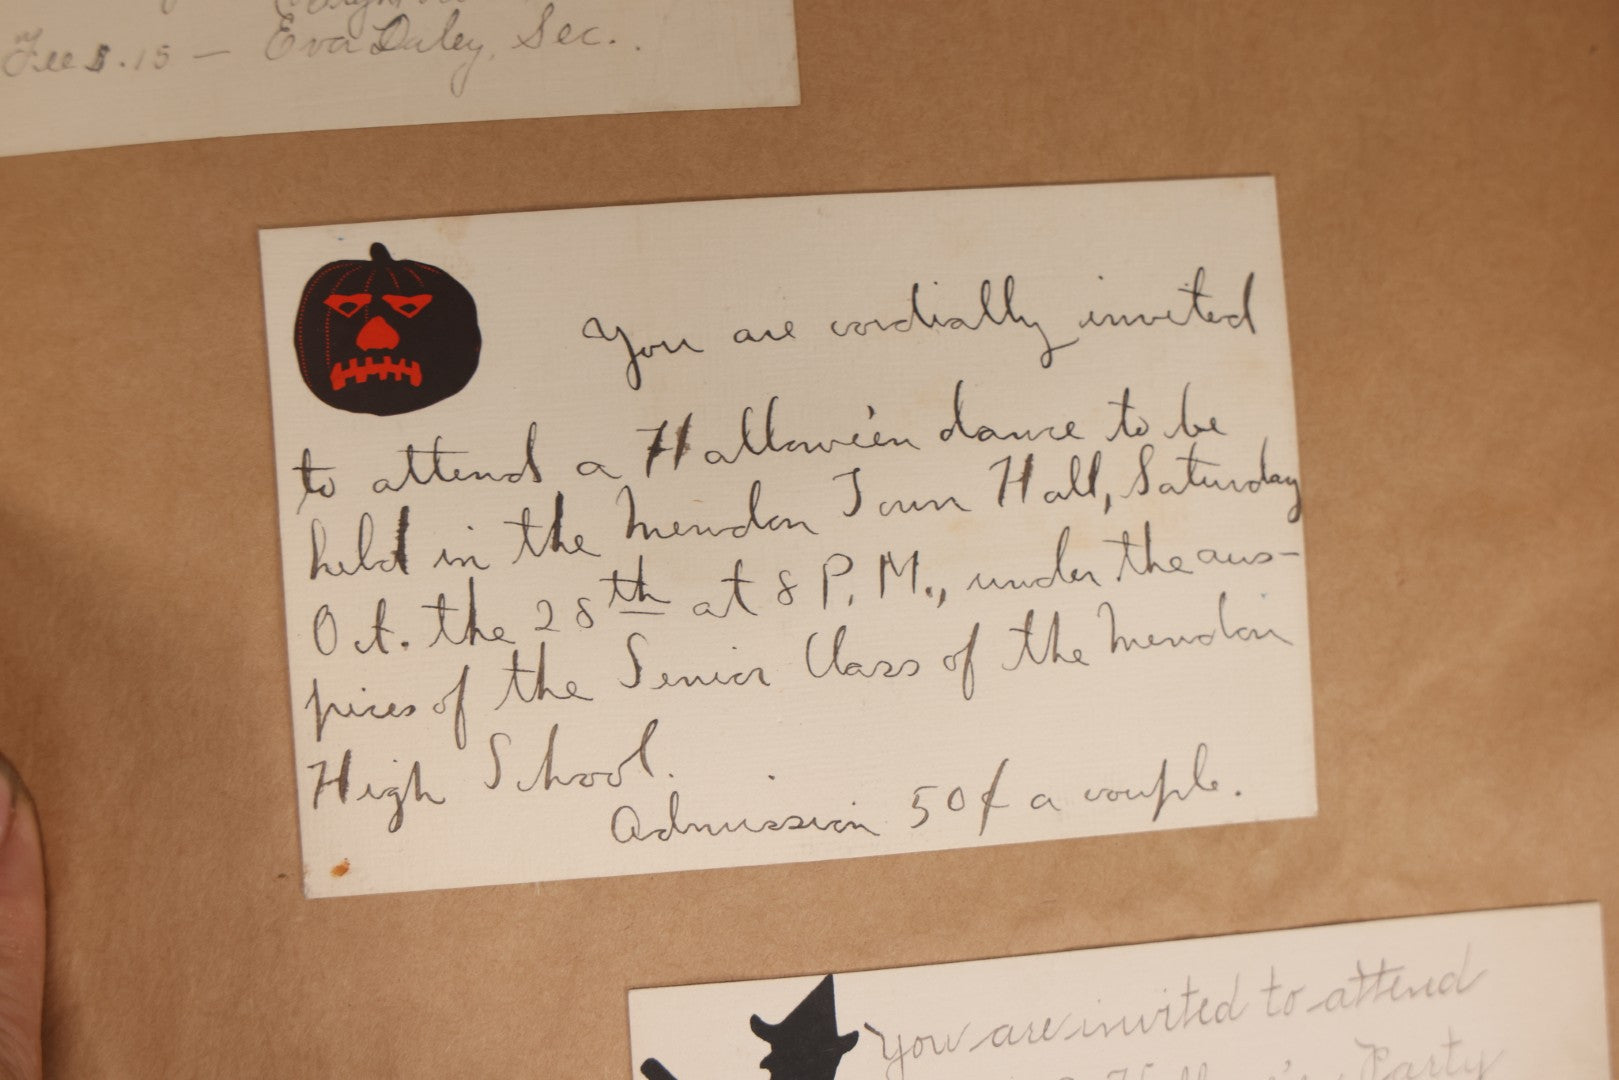 Fee $.15 — Eva Daley, Sec.
You are cordially invited
to attend a Hallowe'en dance to be
held in the Mendon Town Hall, Saturday
Oct. the 28th at 8 P.M., under the aus-
pices of the Senior Class of the Mendon
High School.
Admission 50¢ a couple.
You are invited to attend
a Hallowe'en Party